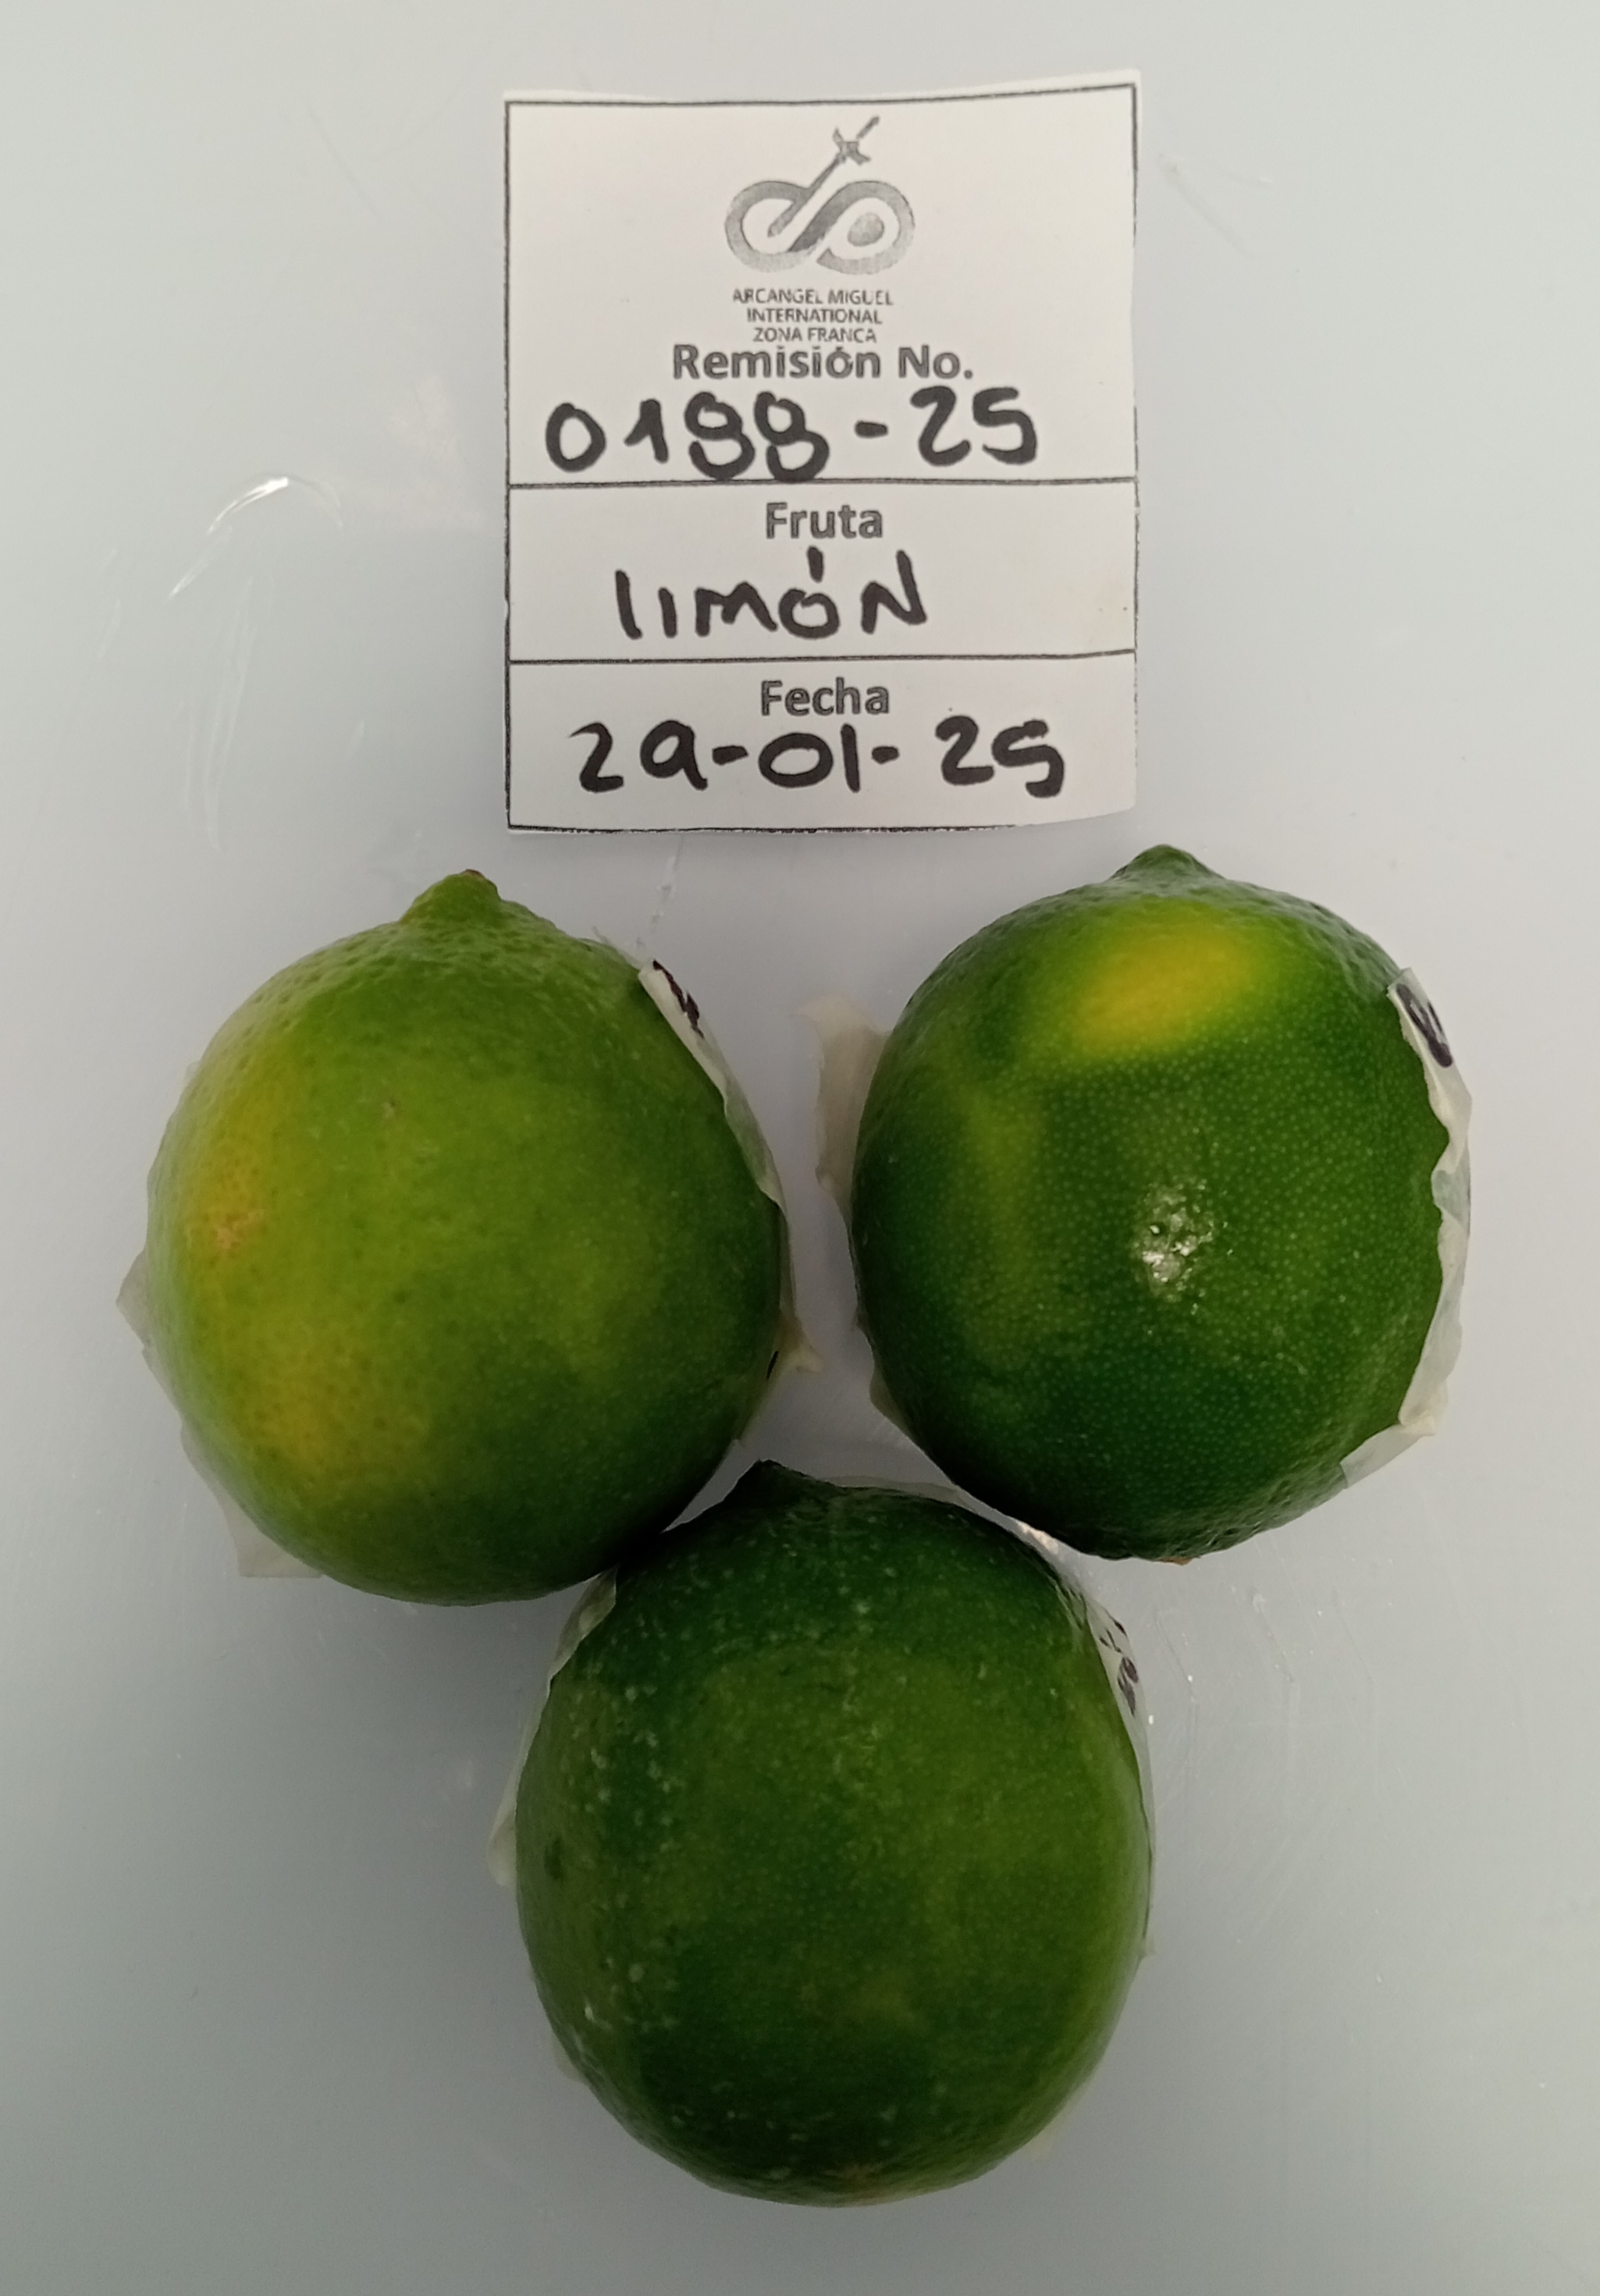 ARCANGEL MIGUEL
INTERNATIONAL
ZONA FRANCA
Remisión No.
0188-25
Fruta
limón
Fecha
29-01-25